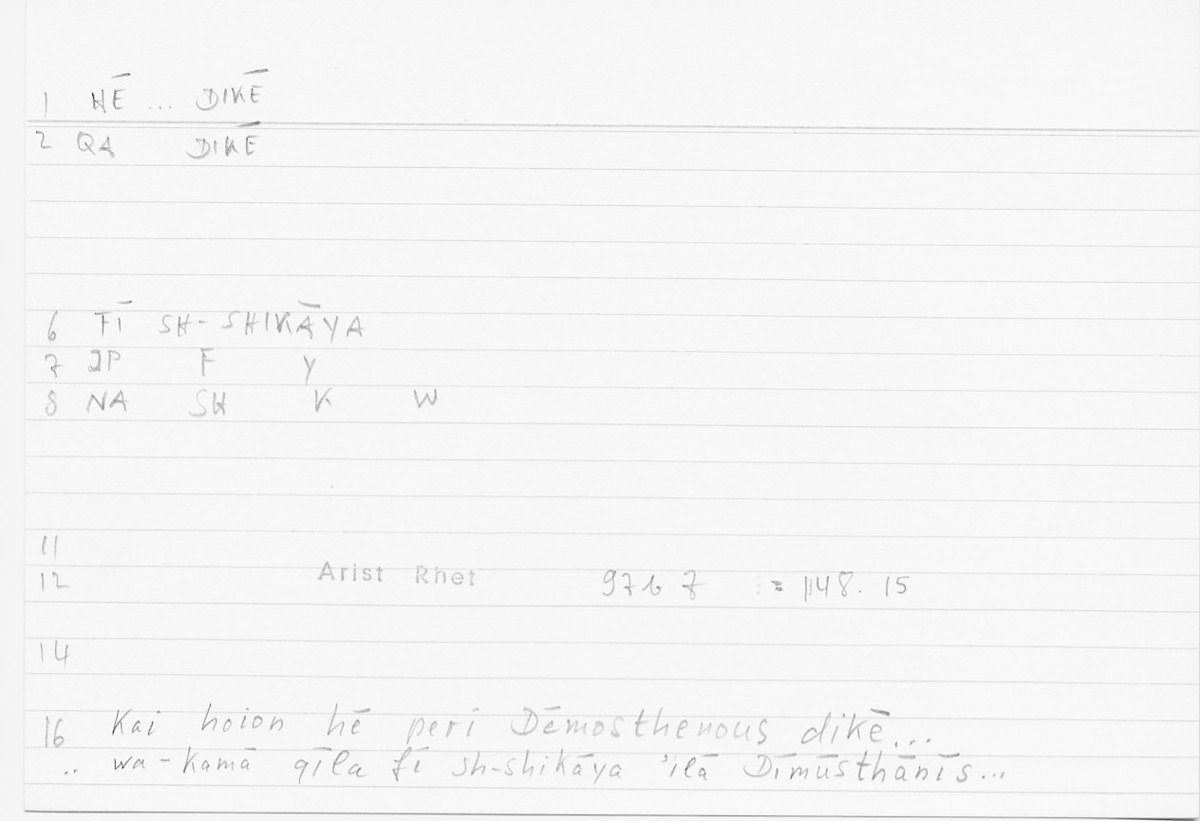 1 HĒ ... DIKĒ
2 QA DIKĒ
6 FĪ SH-SHIKĀYA
7 JP F Y
8 NA SH K W
11
12 Arist Rhet 97b 7 := 148. 15
14
16 Kai hoion hē peri Dēmosthenous dikē...
.. wa-kamā qīla fī sh-shikāya 'ilā Dīmūsthānīs...